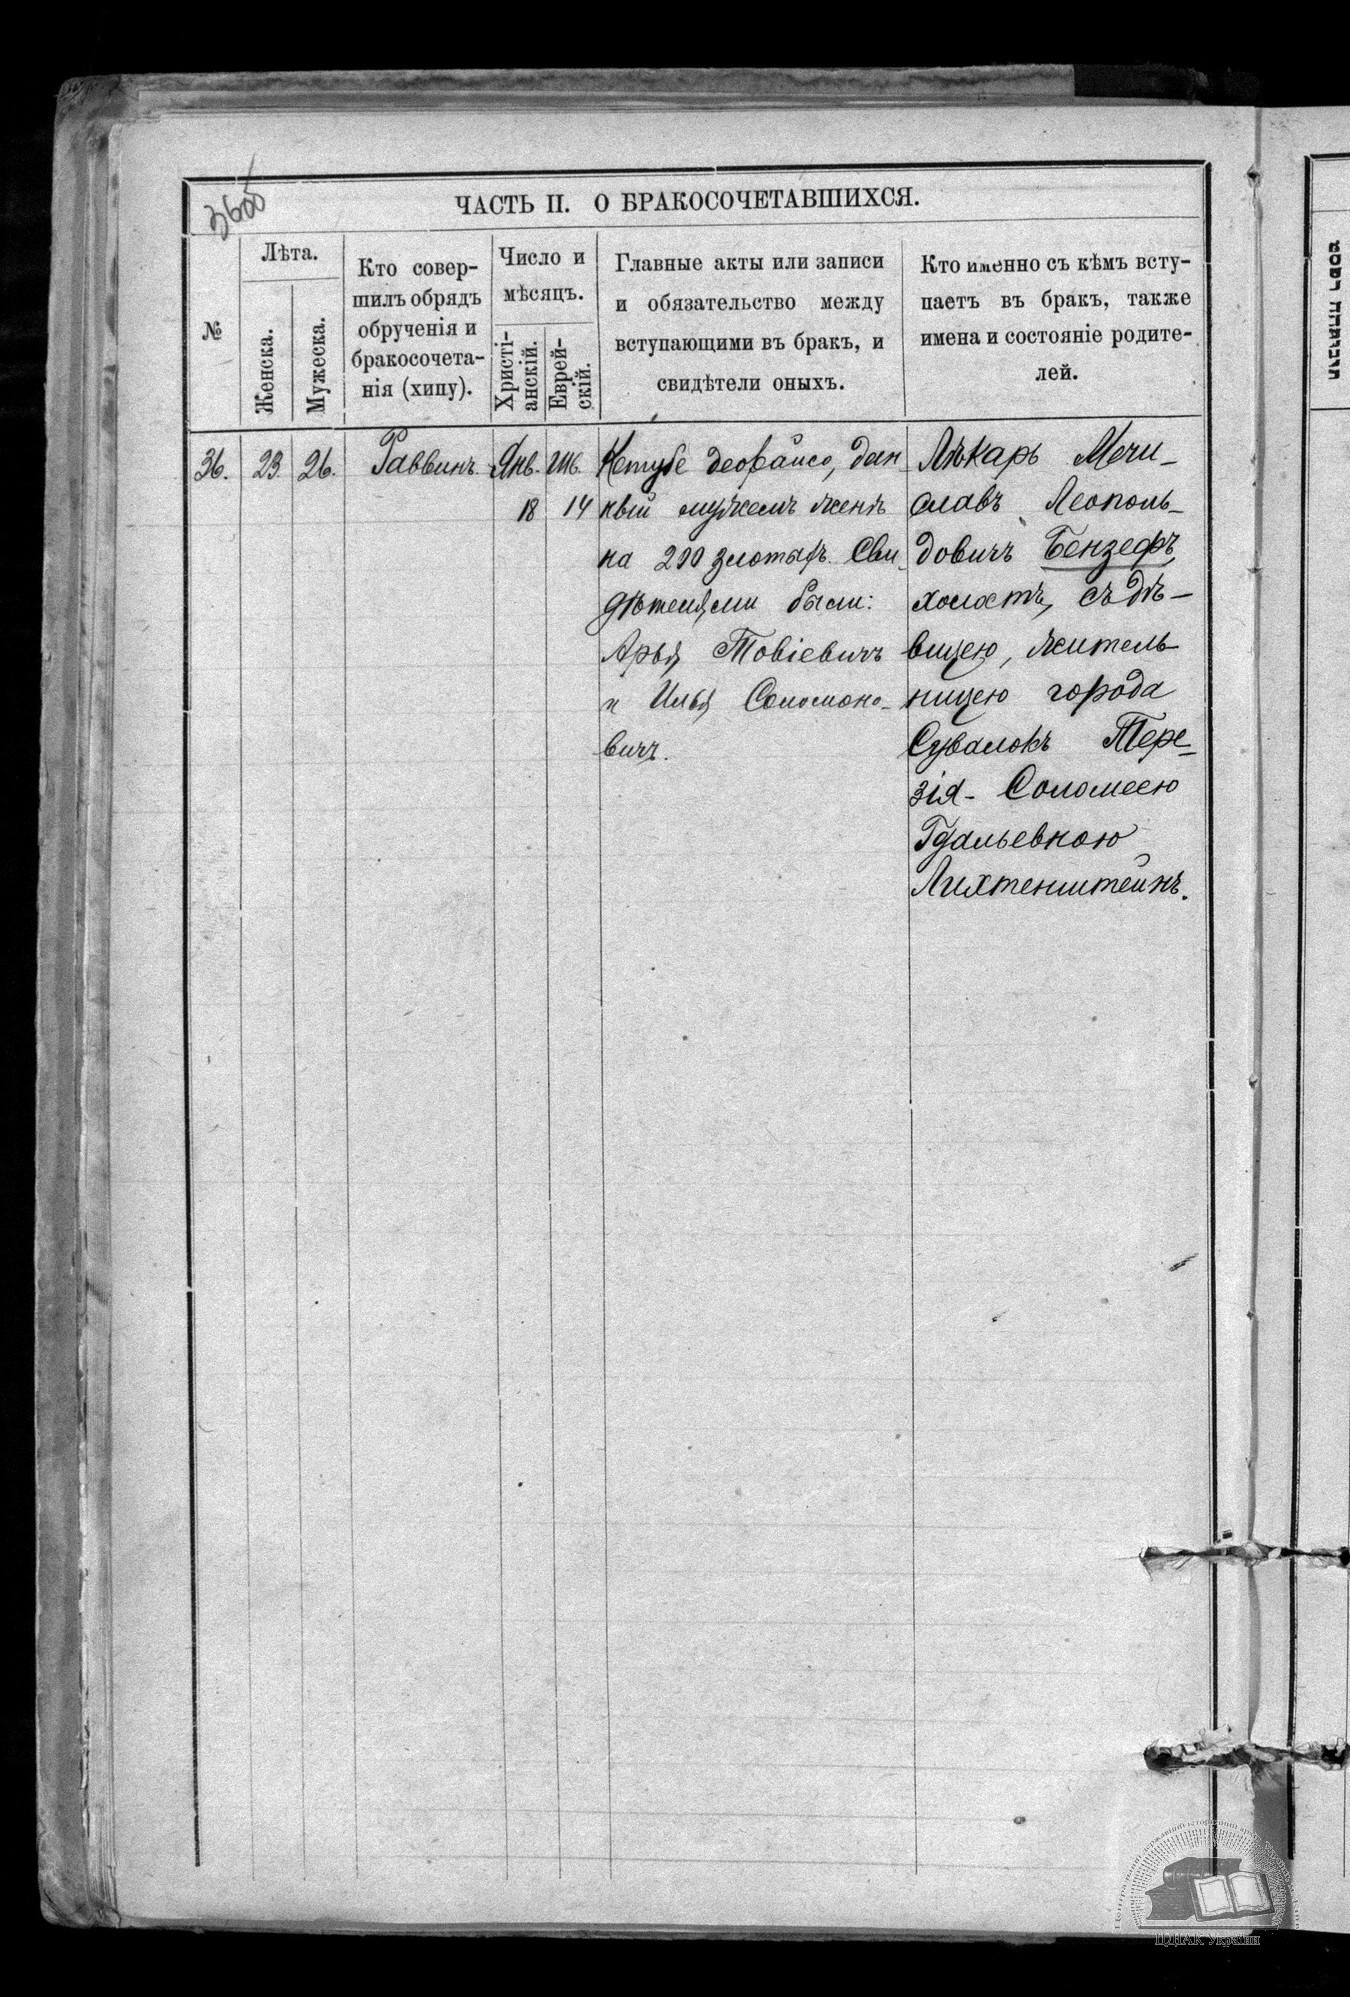 3600
ЧАСТЬ II. О БРАКОСОЧЕТАВШИХСЯ.
№
Лѣта.
Женска.
Мужеска.
Кто совер-
шилъ обрядъ
обрученія и
бракосочета-
нія (хипу).
Число и
мѣсяцъ.
Христі-
анскій.
Еврей-
скій.
Главные акты или записи
и обязательство между
вступающими въ бракъ, и
свидѣтели оныхъ.
Кто именно съ кѣмъ всту-
паетъ въ бракъ, также
имена и состояніе родите-
лей.
36.
23.
26.
Раввинъ.
Янв.
18
Шв.
14
Кетубе деорайсо, дан
ный мужемъ женѣ
на 200 злотыхъ. Сви-
дѣтелями были:
Арья Товіевичъ
и Илья Соломоно-
вичъ.
Лѣкарь Мечи-
славъ Леополь-
довичъ Бензефъ,
холостъ, съ дѣ-
вицею, житель-
ницею города
Сувалокъ Тере-
зія-Соломеею
Гдальевною
Лихтенштейнъ.
ЦДІАК України